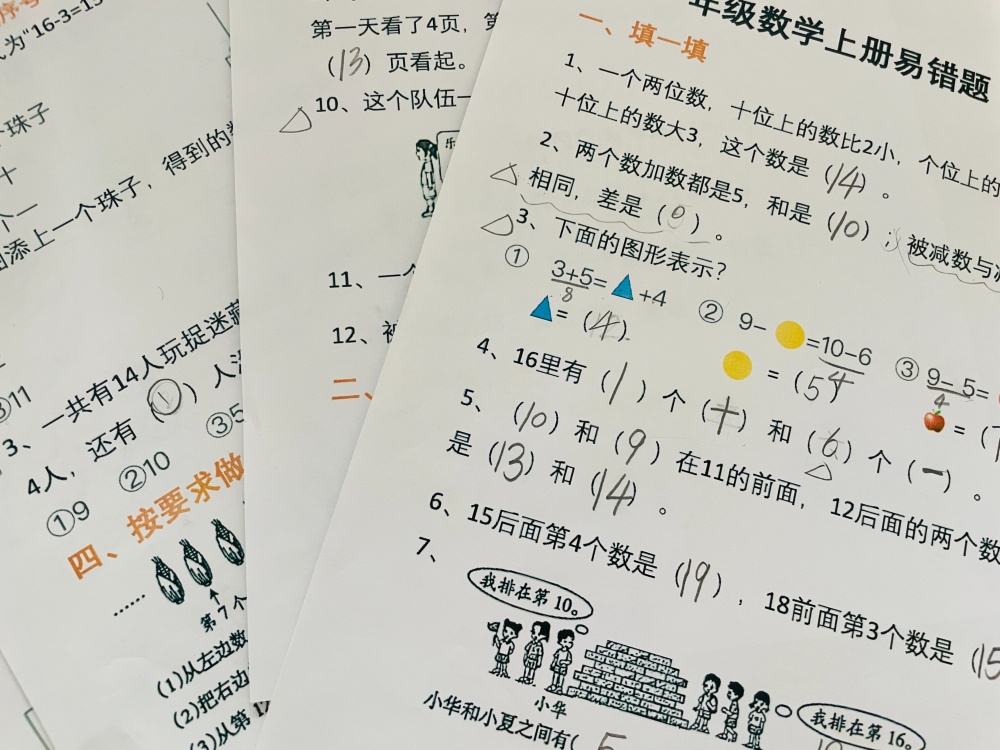 年级数学上册易错题
一、填一填
1、一个两位数，十位上的数比2小，个位上的
十位上的数大3，这个数是（14）。
2、两个数加数都是5，和是（10）；被减数与减
相同，差是（0）。
3、下面的图形表示？
① 3+5=▲+4 ② 9-●=10-6 ③ 9-5=
8 4
▲=（4） ●=（5 4 🍎=（
4、16里有（1）个（十）和（6）个（一）。
5、（10）和（9）在11的前面，12后面的两个数
是（13）和（14）。
6、15后面第4个数是（19），18前面第3个数是（15
7、
我排在第10。
小华
我排在第16。
小华和小夏之间有(5
第一天看了4页，第
（13）页看起。
10、这个队伍一
11、一个
12、被
二、
序号
为"16-3=13
个珠子
十
个一
添上一个珠子，得到的
③11
3、一共有14人玩捉迷藏
4人，还有（①）人没
①9 ②10 ③5
四、按要求做
……
第7个
(1)从左边数
(2)把右边
(3)从第